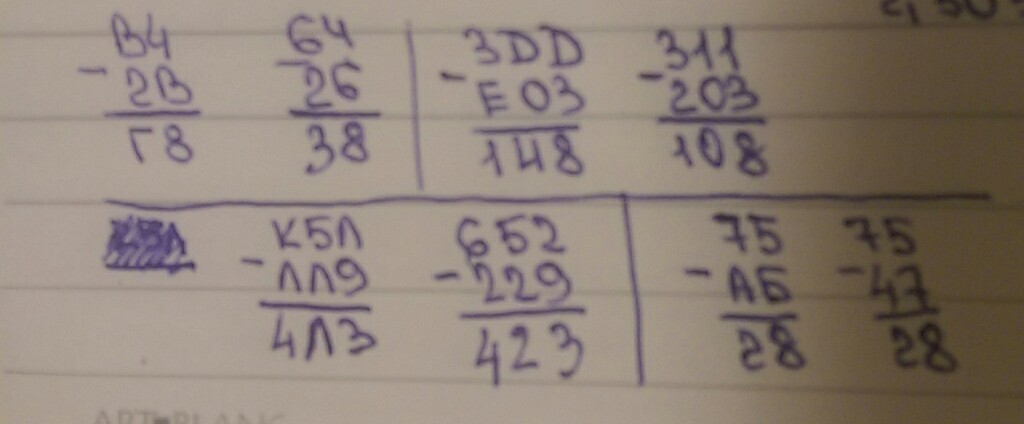 2,50
В4 64 3DD 311
- 2В - 26 - Е03 - 203
Г8 38 1Ч8 108
К5Л 652 75 75
- ЛЛ9 - 229 - АБ - 47
4Л3 423 28 28